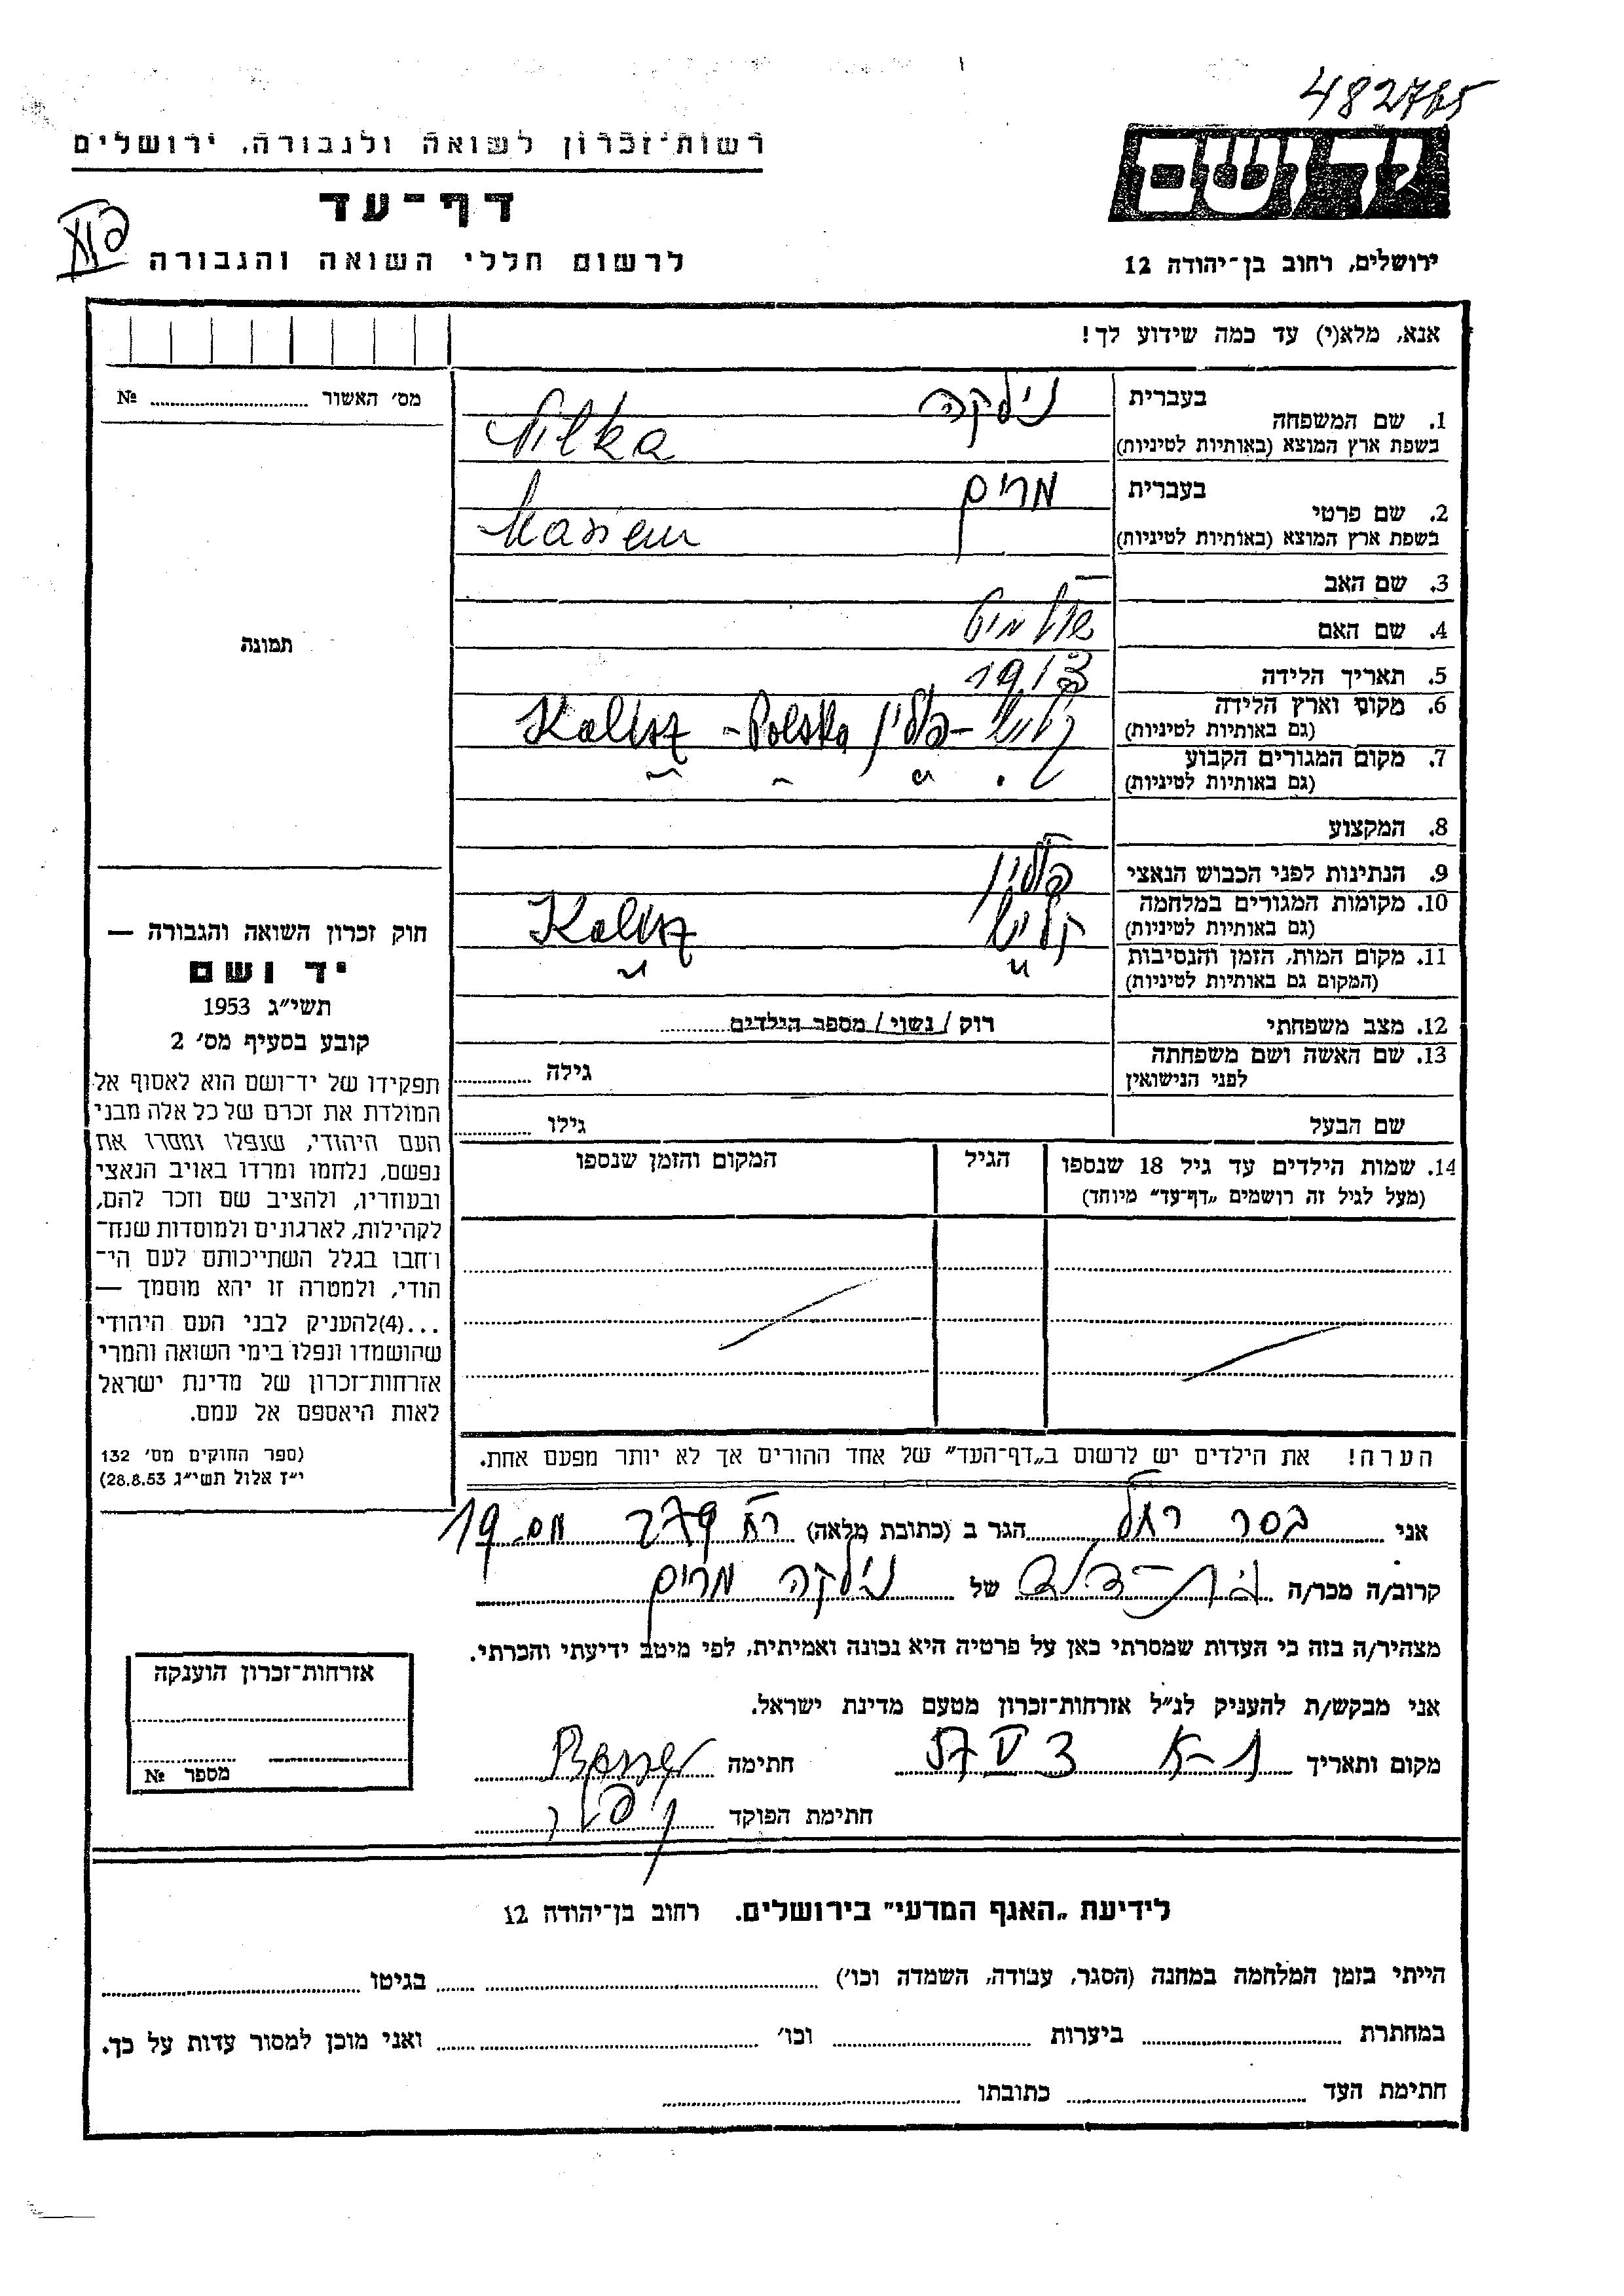 482765
רשות־זכרון לשואה ולגבורה, ירושלים
דף־עד
לרשום חללי השואה והגבורה
יד ושם
ירושלים, רחוב בן־יהודה 12
אנא, מלא(י) עד כמה שידוע לך!
מס׳ האשור № 
1. שם המשפחה
בעברית נילקה
בשפת ארץ המוצא (באותיות לטיניות) Nilka
2. שם פרטי
בעברית מרים
בשפת ארץ המוצא (באותיות לטיניות)
3. שם האב —
4. שם האם
5. תאריך הלידה 1913
6. מקום וארץ הלידה (גם באותיות לטיניות) קליש - פולין Kalisz - Polska
7. מקום המגורים הקבוע (גם באותיות לטיניות) " " " "
8. המקצוע
9. הנתינות לפני הכבוש הנאצי פולין
10. מקומות המגורים במלחמה (גם באותיות לטיניות) קליש Kalisz
11. מקום המות, הזמן והנסיבות (המקום גם באותיות לטיניות) " "
12. מצב משפחתי רוק / נשוי / מספר הילדים
13. שם האשה ושם משפחתה לפני הנישואין גילה
שם הבעל גילו
14. שמות הילדים עד גיל 18 שנספו (מעל לגיל זה רושמים „דף־עד” מיוחד)
הגיל
המקום והזמן שנספו
הערה! את הילדים יש לרשום ב„דף־העד” של אחד ההורים אך לא יותר מפעם אחת.
תמונה
חוק זכרון השואה והגבורה —
יד ושם
תשי״ג 1953
קובע בסעיף מס׳ 2
תפקידו של יד־ושם הוא לאסוף אל
המולדת את זכרם של כל אלה מבני
העם היהודי, שנפלו ומסרו את
נפשם, נלחמו ומרדו באויב הנאצי
ובעוזריו, ולהציב שם וזכר להם,
לקהילות, לארגונים ולמוסדות שנח־
רחבו בגלל השתייכותם לעם הי־
הודי, ולמטרה זו יהא מוסמך —
...(4)להעניק לבני העם היהודי
שהושמדו ונפלו בימי השואה והמרי
אזרחות־זכרון של מדינת ישראל
לאות היאספם אל עמם.
(ספר החוקים מס׳ 132
י״ז אלול תשי״ג 28.8.53)
אני בסר רחל הגר ב (כתובת מלאה) רח׳ 279 מס 19
קרוב/ה מכר/ה בת-דודה של נילקה מרים
מצהיר/ה בזה כי העדות שמסרתי כאן על פרטיה היא נכונה ואמיתית, לפי מיטב ידיעתי והכרתי.
אני מבקש/ת להעניק לנ״ל אזרחות־זכרון מטעם מדינת ישראל.
מקום ותאריך ת-א 3 V 57 חתימה
חתימת הפוקד
אזרחות־זכרון הוענקה
מספר №
לידיעת „האגף המדעי” בירושלים. רחוב בן־יהודה 12
הייתי בזמן המלחמה במחנה (הסגר, עבודה, השמדה וכו׳) בגיטו
במחתרת ביערות וכו׳ ואני מוכן למסור עדות על כך.
חתימת העד כתובתו